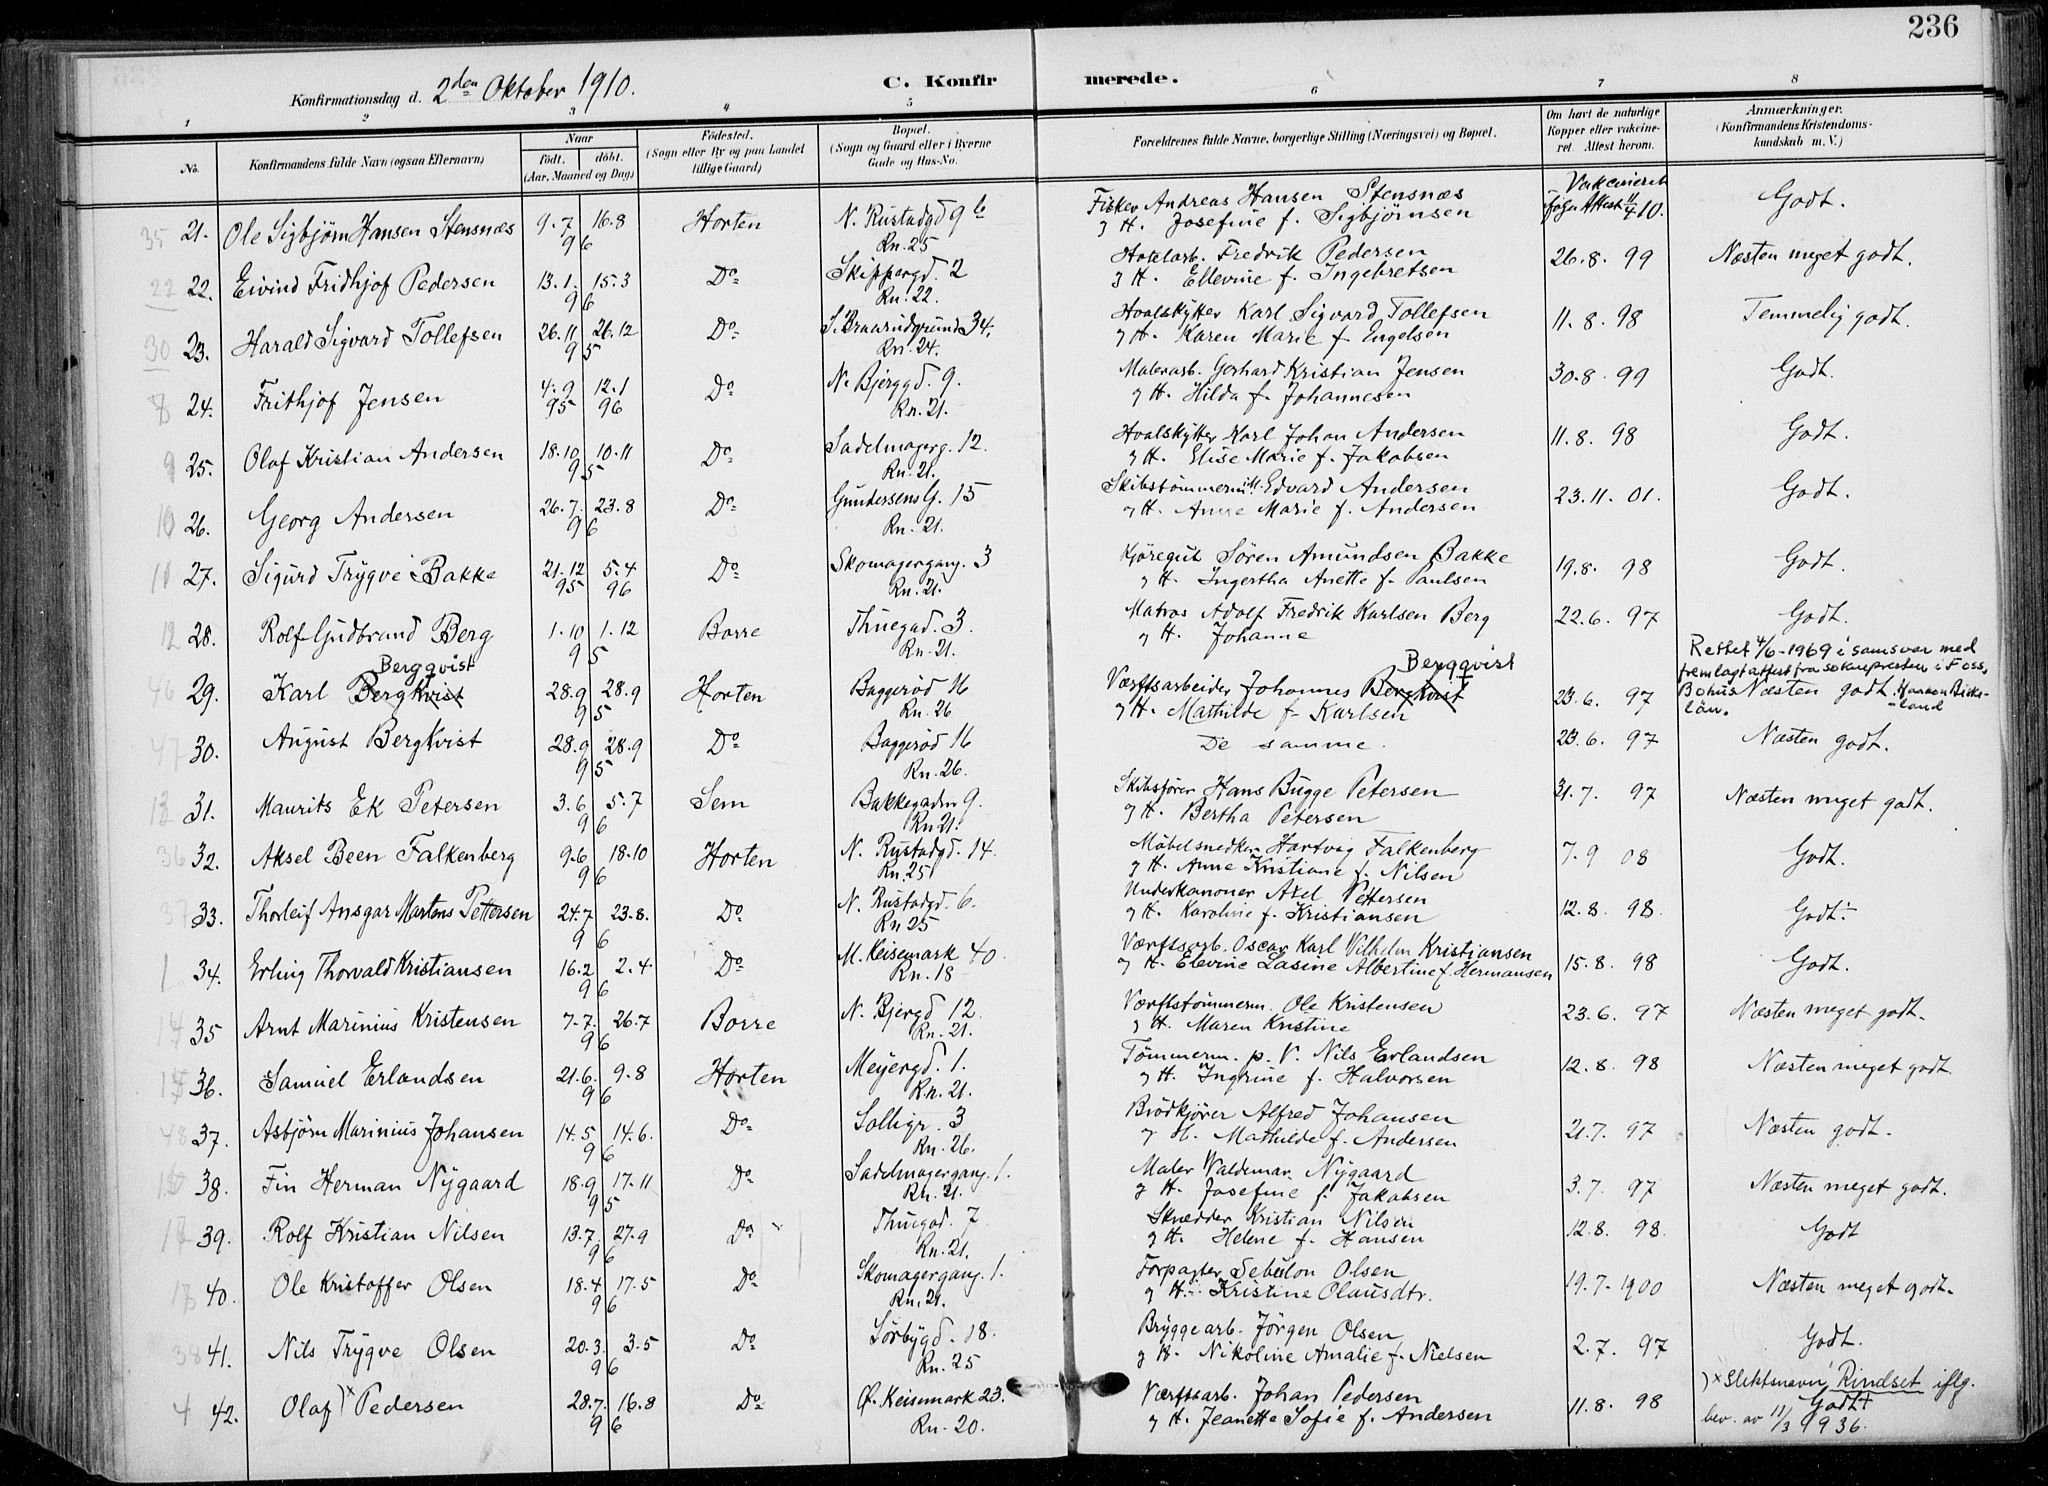 236
Konfirmationsdag d. 2den Oktober 1910.
C. Konfirmerede.
1 2 3 4 5 6 7 8
No.
Konfirmandens fulde Navn (ogsaa Efternavn)
Naar
født. døbt.
(Aar, Maaned og Dag)
Fødested.
(Sogn eller By og paa Landet
tillige Gaard)
Bopæl.
(Sogn og Gaard eller i Byerne
Gade og Hus-No.
Forældrenes fulde Navne, borgerlige Stilling (Næringsvei) og Bopæl.
Om havt de naturlige
Kopper eller vakcine-
ret. Attest herom.
Anmærkninger.
(Konfirmandens Kristendoms-
kundskab m. V.)
35 21. Ole Sigbjørn Hansen Stensnæs 9.7 16.8 96 Horten N. Rustadgd 9 b Rn. 25 Fisker Andreas Hansen Stensnæs
g H. Josefine f. Sigbjørnsen Vakcineret ifølge Attest 11/4 10. Godt.
22 22. Eivind Fridhjof Pedersen 13.1. 15.3 96 Do Skippergd. 2 Rn. 22. Hvalarb. Fredrik Pedersen
g H. Ellevine f. Ingebretsen 26.8. 99 Næsten meget godt.
30 23. Harald Sigvard Tollefsen 26.11 26.12 95 Do S. Braarudgrund 34. Rn. 24. Hvalskytter Karl Sigvard Tollefsen
g H. Karen Marie f. Engelsen 11.8. 98 Temmelig godt.
8 24. Frithjof Jensen 4.9 95 12.1 96 Do N. Bjerggd. 9. Rn. 21. Malerarb. Gerhard Kristian Jensen
g H. Hilda f. Johannesen 30.8. 99 Godt.
9 25. Olaf Kristian Andersen 18.10 10.11 95 Do Sadelmagerg. 12. Rn. 21. Hvalskytter Karl Johan Andersen
g H. Elise Marie f. Jakobsen 11.8. 98 Godt.
10 26. Georg Andersen 26.7. 23.8 96 Do Gundersens G. 15 Rn. 21. Skibstømmerm. Edvard Andersen
g H. Anne Marie f. Andersen 23.11. 01. Godt.
11 27. Sigurd Trygve Bakke 21.12 95 5.4 96 Do Skomagergang. 3 Rn. 21. Kjøregut Søren Amundsen Bakke
g H. Ingertha Anette f. Paulsen 19.8. 98 Godt.
12 28. Rolf Gudbrand Berg 1.10 1.12 95 Borre Thuegad. 3. Rn. 21. Matros Adolf Fredrik Karlsen Berg
g H. Johanne 22.6. 97 Godt.
46 29. Karl Bergkvist Bergqvist 28.9 28.9 95 Horten Baggerød 16 Rn. 26 Værftsarbeider Johannes Bergkvist Bergqvist
g H. Mathilde f. Karlsen 23.6. 97 Næsten godt.
Rettet 4/6-1969 i samsvar med
fremlagt attest fra soknepresten i Foss,
Bohus län.
47 30. August Bergkvist 28.9 28.9 95 Do Baggerød 16 Rn. 26. De samme. 23.6. 97 Næsten godt.
13 31. Maurits Ek Petersen 3.6 5.7 96 Sem Bakkegaden 9. Rn 21. Skibsfører Hans Bugge Petersen
g H. Bertha Petersen 31.7. 97 Næsten meget godt.
36 32. Aksel Been Falkenberg 9.6 18.10 96 Horten N. Rustadgd. 14. Rn. 25 Møbelsnedker Hartvig Falkenberg
g H. Anne Kristiane f. Nilsen 7.9 08 Godt.
37 33. Thorleif Ansgar Martens Pettersen 24.7 23.8. 96 Do N. Rustadgd. 6. Rn 25 Underkanoner Axel Pettersen
g H. Karoline f. Kristiansen 12.8. 98. Godt.
1 34. Erling Thorvald Kristiansen 16.2 2.4 96 Do M. Keisemark 40. Rn. 18 Værftsarb. Oscar Karl Vilhelm Kristiansen
g H. Elevine Lasine Albertine f. Hermansen 15.8. 98 Godt.
14 35 Arnt Marinius Kristensen 7.7. 26.7 96 Borre N. Bjergd 12. Rn. 21. Værftstømmerm. Ole Kristensen
g H. Maren Kristine 23.6. 97 Næsten meget godt.
15 36. Samuel Erlandsen 21.6. 9.8 96 Horten Meyergd. 1. Rn. 21. Tømmerm. p. V. Nils Erlandsen
g H. Ingrine f. Halvorsen 12.8. 98 Næsten meget godt.
48 37. Asbjørn Marinius Johansen 14.5 14.6. 96 Do Solligr. 3 Rn. 26. Brødkjører Alfred Johansen
g H. Mathilde f. Andersen 21.7. 97 Næsten godt.
16 38. Fin Herman Nygaard 18.9 17.11 95 Do Sadelmagergang. 1. Rn. 21. Maler Waldemar Nygaard
g H. Josefine f. Jakobsen 3.7. 97 Næsten meget godt.
17 39. Rolf Kristian Nilsen 13.7. 27.9 96 Do Thuegad. 7 Rn. 21. Skrædder Kristian Nilsen
g H. Helene f. Hansen 12.8. 98. Godt
18 40. Ole Kristoffer Olsen 18.4 17.5 96 Do Skomagergang. 1. Rn. 21. Forpagter Sebulon Olsen
g H. Kristine Olausdtr. 19.7-1900 Næsten meget godt.
38 41. Nils Trygve Olsen 20.3. 3.5 96 Do Sørbygd. 18. Rn. 25 Bryggearb. Jørgen Olsen
g H. Nikoline Amalie f. Nielsen 2.7. 97 Godt.
4 42. Olaf )x Pedersen 28.7. 16.8 96 Do Ø. Keisemark 23. Rn. 20. Værftsarb. Johan Pedersen
g H. Jeanette Sofie f. Andersen 11.8. 98 Godt
)x Slektsnavn Rindset iflg.
bev. av 11/3 1936.